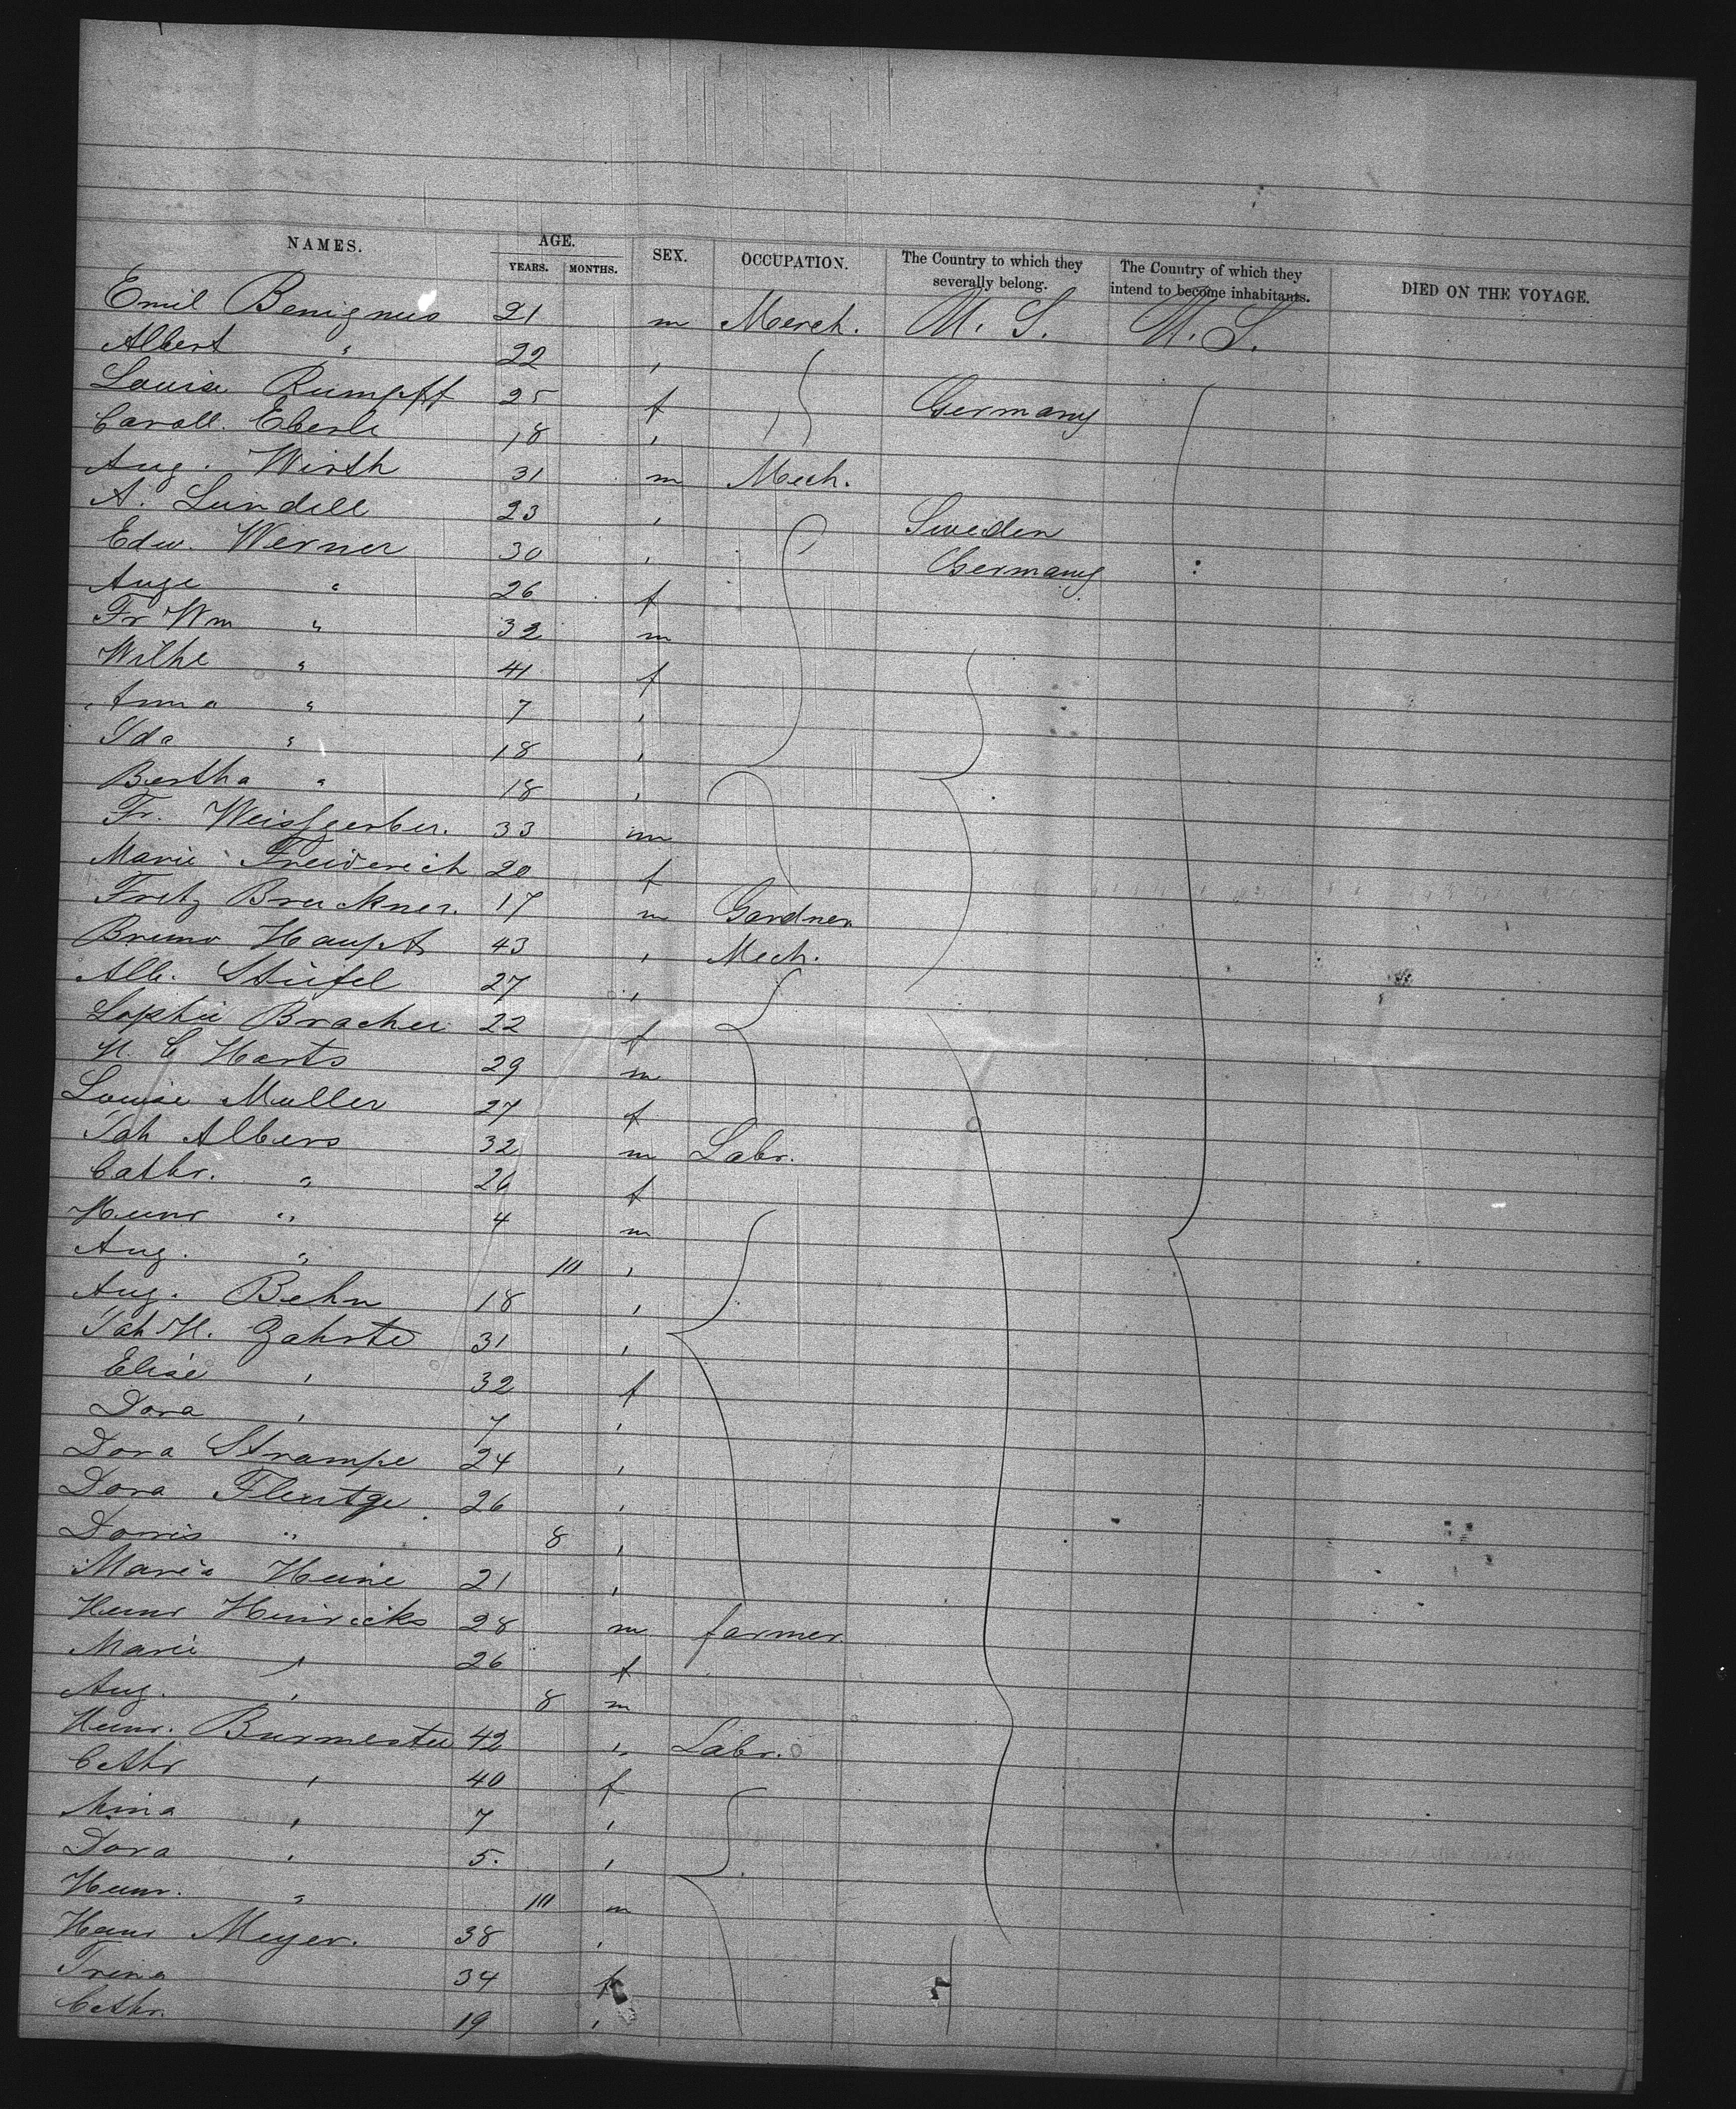 NAMES. AGE. SEX. OCCUPATION. The Country to which they severally belong. The Country of which they intend to become inhabitants. DIED ON THE VOYAGE.
YEARS. MONTHS.
Emil Benignus 21 m Merch. U. S. U. S.
Albert " 22 "
Louise Rumpff 25 f Germany
Caroll. Eberle 18 "
Aug. Wirth 31 m Mech.
A. Lundell 23 " Sweden
Edw. Werner 30 " Germany
Auge " 26 f
Fr Wm " 32 m
Wilhe " 41 f
Anna " 7 "
Ida " 18 "
Bertha " 18 "
Fr. Weissgerber. 33 m
Marie Freiderich 20 f
Fretz Bruckner. 17 m Gardner
Bruno Haupt 43 " Mech.
Alb. Stiefel 27 "
Sophie Bracher 22 f
H. C Harts 29 m
Louise Muller 27 f
Joh Albers 32 m Labr.
Cathr. " 26 f
Heinr " 4 m
Aug. " 10 "
Aug. Behn 18 "
Joh H. Zahrte 31 "
Elise " 32 f
Dora " 7 "
Dora Strampe 24 "
Dora Flentge. 26 "
Dorris " 8 "
Maria Heine 21 "
Heinr Heinricks 28 m farmer.
Marie " 26 f
Aug. " 8 m
Heinr. Burmester 42 " Labr.
Cathr " 40 f
Mina " 7 "
Dora " 5. "
Heinr. " 10 m
Hans Meyer. 38 "
Trina 34 f
Cathr. 19 "